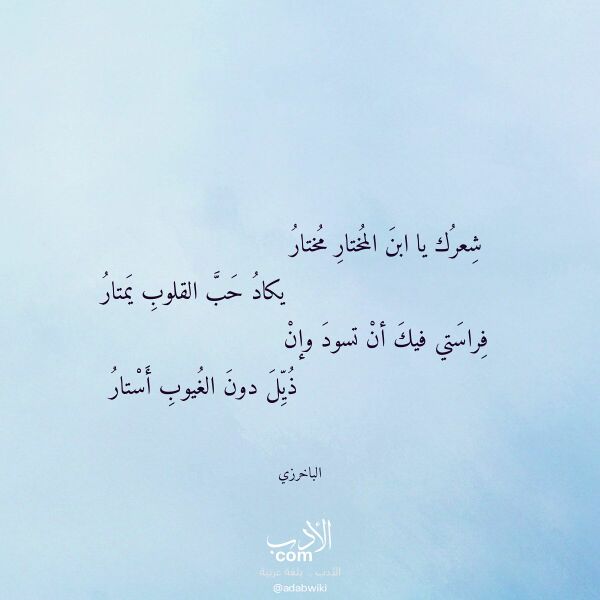 شِعرُك يا ابنَ المُختارِ مُختارُ
يكادُ حَبَّ القلوبِ يَمتارُ
فِراسَتي فيكَ أنْ تسودَ وإنْ
ذُيِّلَ دونَ الغُيوبِ أَسْتارُ
الباخرزي
الأدب
com
الأدب .. بلغة عربية
@adabwiki